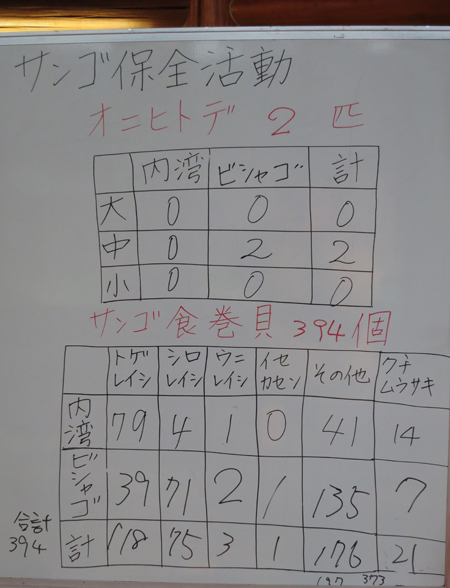 サンゴ保全活動
オニヒトデ 2 匹
内湾 ビシャゴ 計
大 0 0 0
中 0 2 2
小 0 0 0
サンゴ食巻貝 394個
トゲレイシ シロレイシ ウニレイシ イセカセン その他 クチムラサキ
内湾 79 4 1 0 41 14
ビシャゴ 39 71 2 1 135 7
計 118 75 3 1 176 21
合計
394
197 373